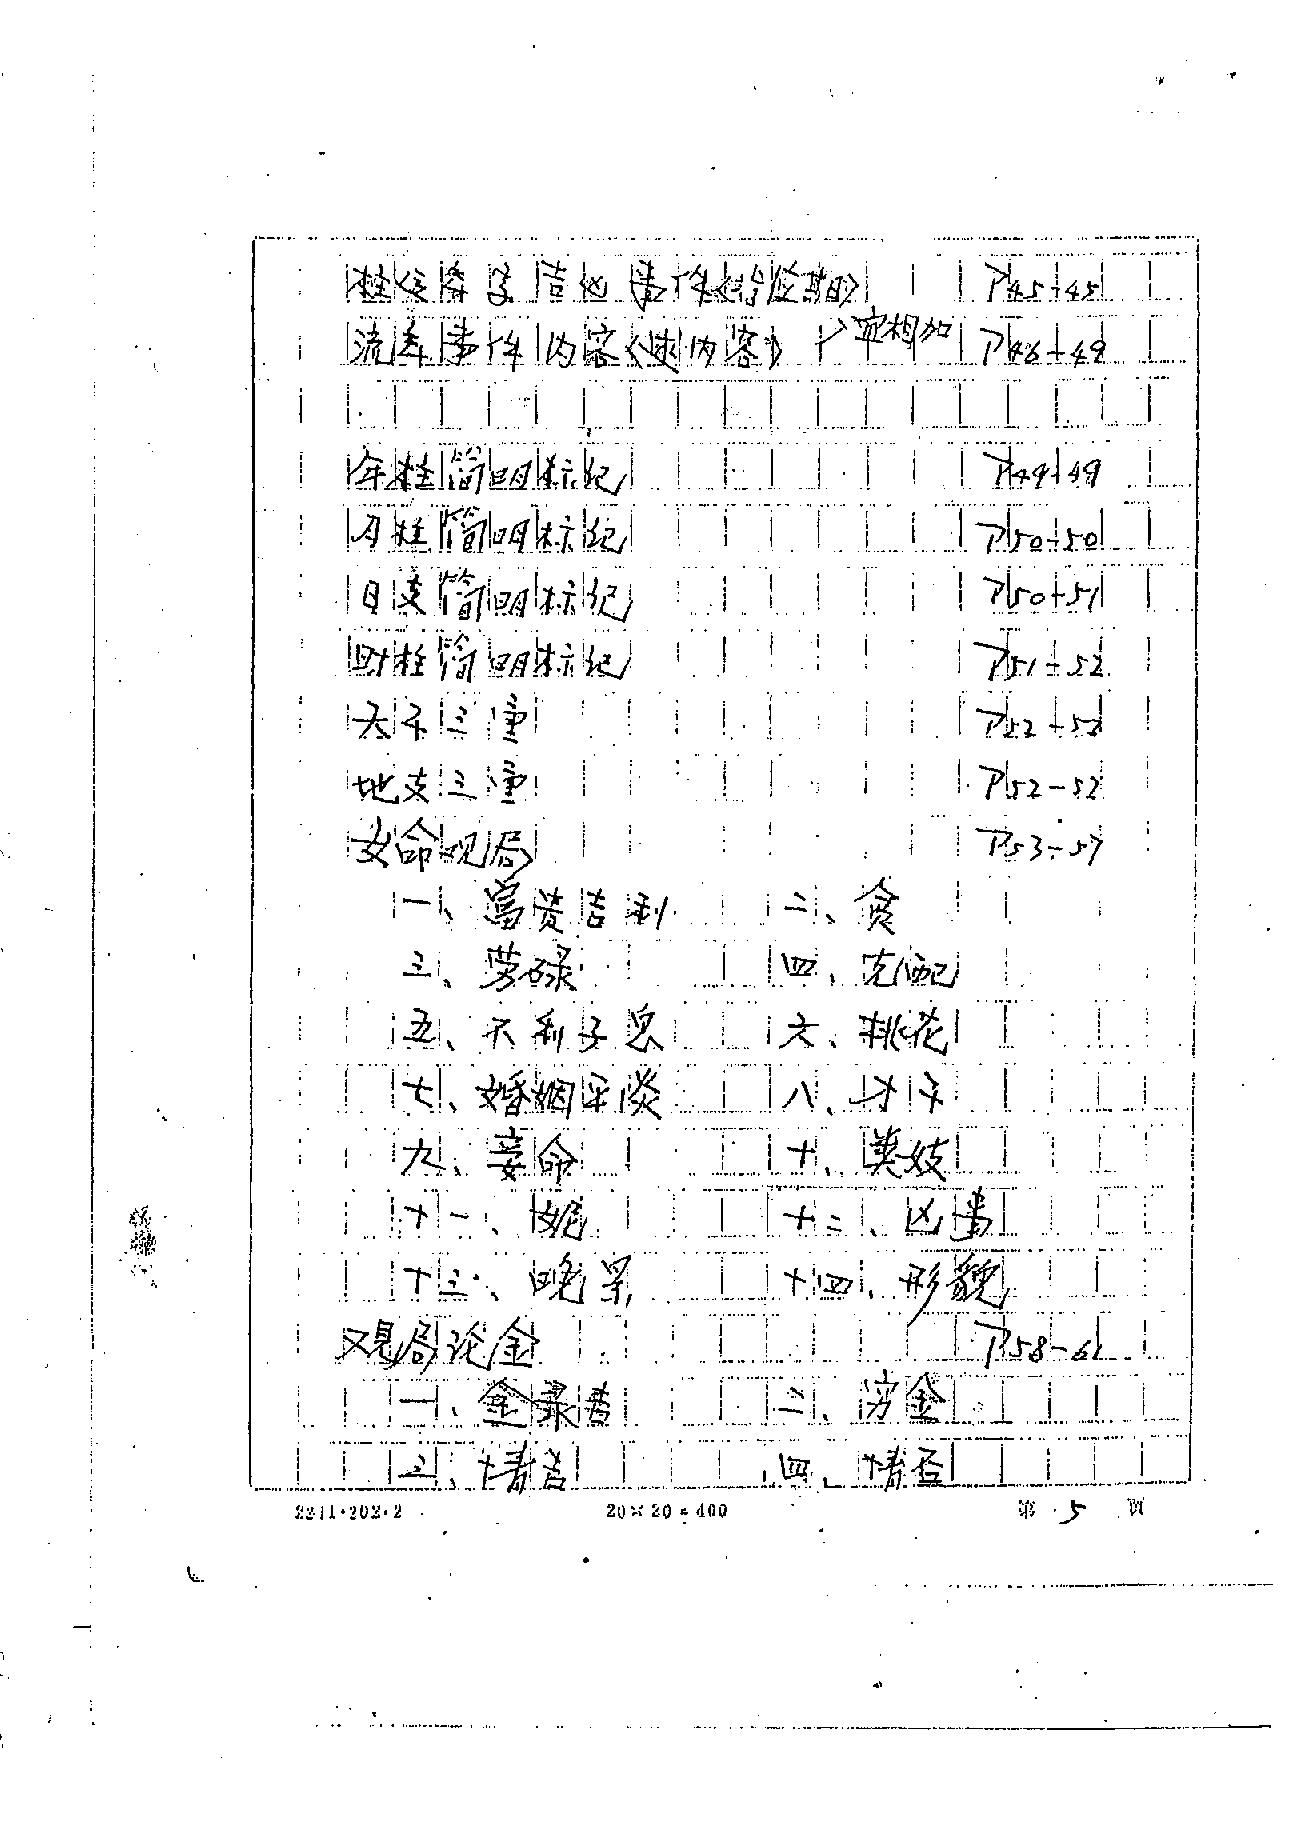 柱运年与吉凶事件始皆应其时 P45-45
流年事件内容（速内容）>宜相加 P46-49
年柱简明标纪 P49-49
月柱简明标纪 P50-50
日支简明标纪 P50-51
时柱简明标纪 P51-52
天干三重 P52-52
地支三重 P52-52
女命观局 P53-57
一、富贵吉利 二、贪
三、劳碌 四、克配
五、不利子息 六、桃花
七、婚姻平淡 八、才干
九、妾命 十、类妓
十一、妮 十二、凶事
十三、晚景 十四、形貌
观局论金 P58-62
一、金录普 二、穷金
三、情吉 四、情否
2211·202·2 20×20=400 第5页